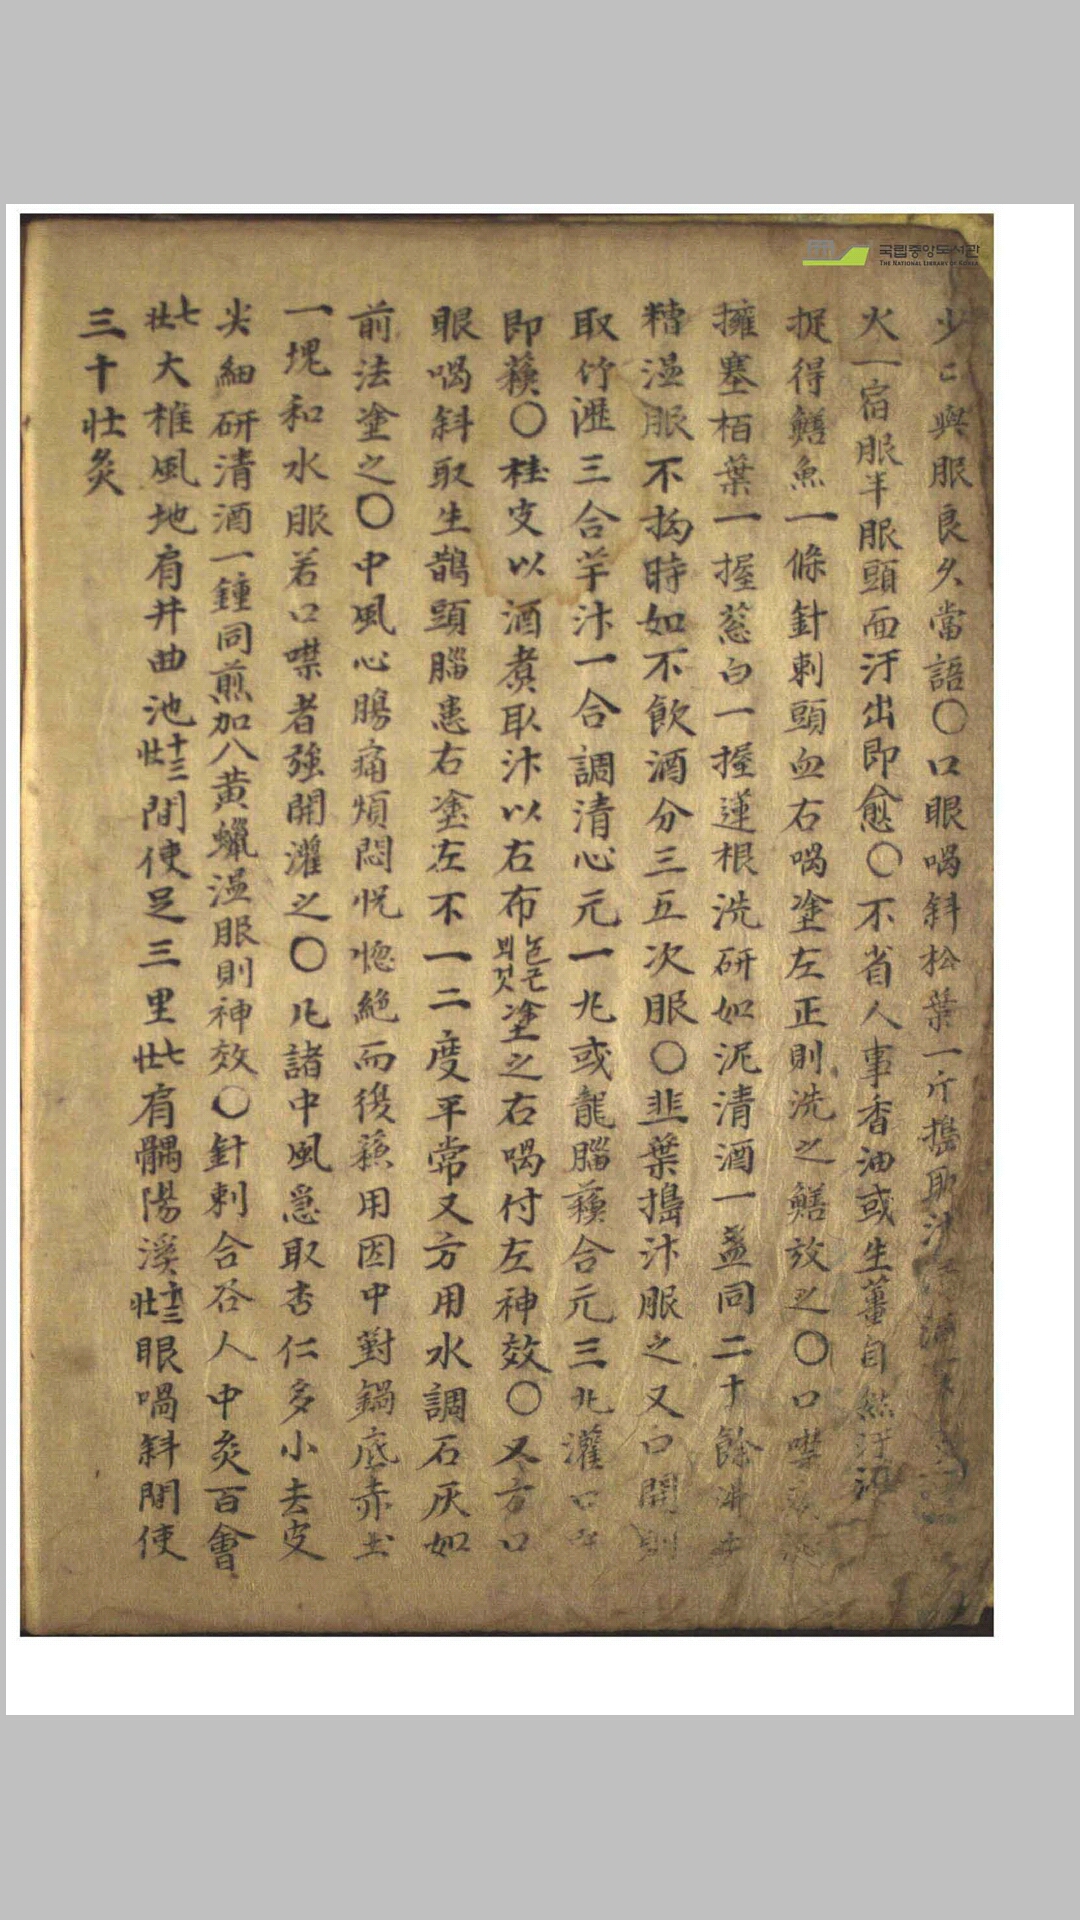 국립중앙도서관
THE NATIONAL LIBRARY OF KOREA
少口與服良久當語〇口眼喎斜松葉一斤搗取汁
火一宿服半服頭面汗出即愈〇不省人事香油或生薑自然汁
捉得鱔魚一條針刺頭血右喎塗左正則洗之鱔放之〇口噤
擁塞栢葉一握葱白一握蓮根洗硏如泥清酒一盞同二十餘沸
糟溫服不拘時如不飮酒分三五次服〇韭葉搗汁服之又口開則
取竹瀝三合羊汁一合調清心元一丸或龍腦蘓合元三丸灌口
即蘓〇桂皮以酒煑取汁以右布눋근믜것塗之右喎付左神效〇又方口
眼喎斜取生鵲頭腦患右塗左不一二度平常又方用水調石灰如
前法塗之〇中風心腸痛煩悶恍惚絶而後蘓用因中對鍋底赤土
一塊和水服若口噤者強開灌之〇凡諸中風急取杏仁多小去皮
尖細硏清酒一鍾同煎加入黃蠟溫服則神效〇針刺合谷人中灸百會
七壯大椎風池肩井曲池十三壯間使足三里七壯肩髃陽溪十三壯眼喎斜間使
三十壯灸